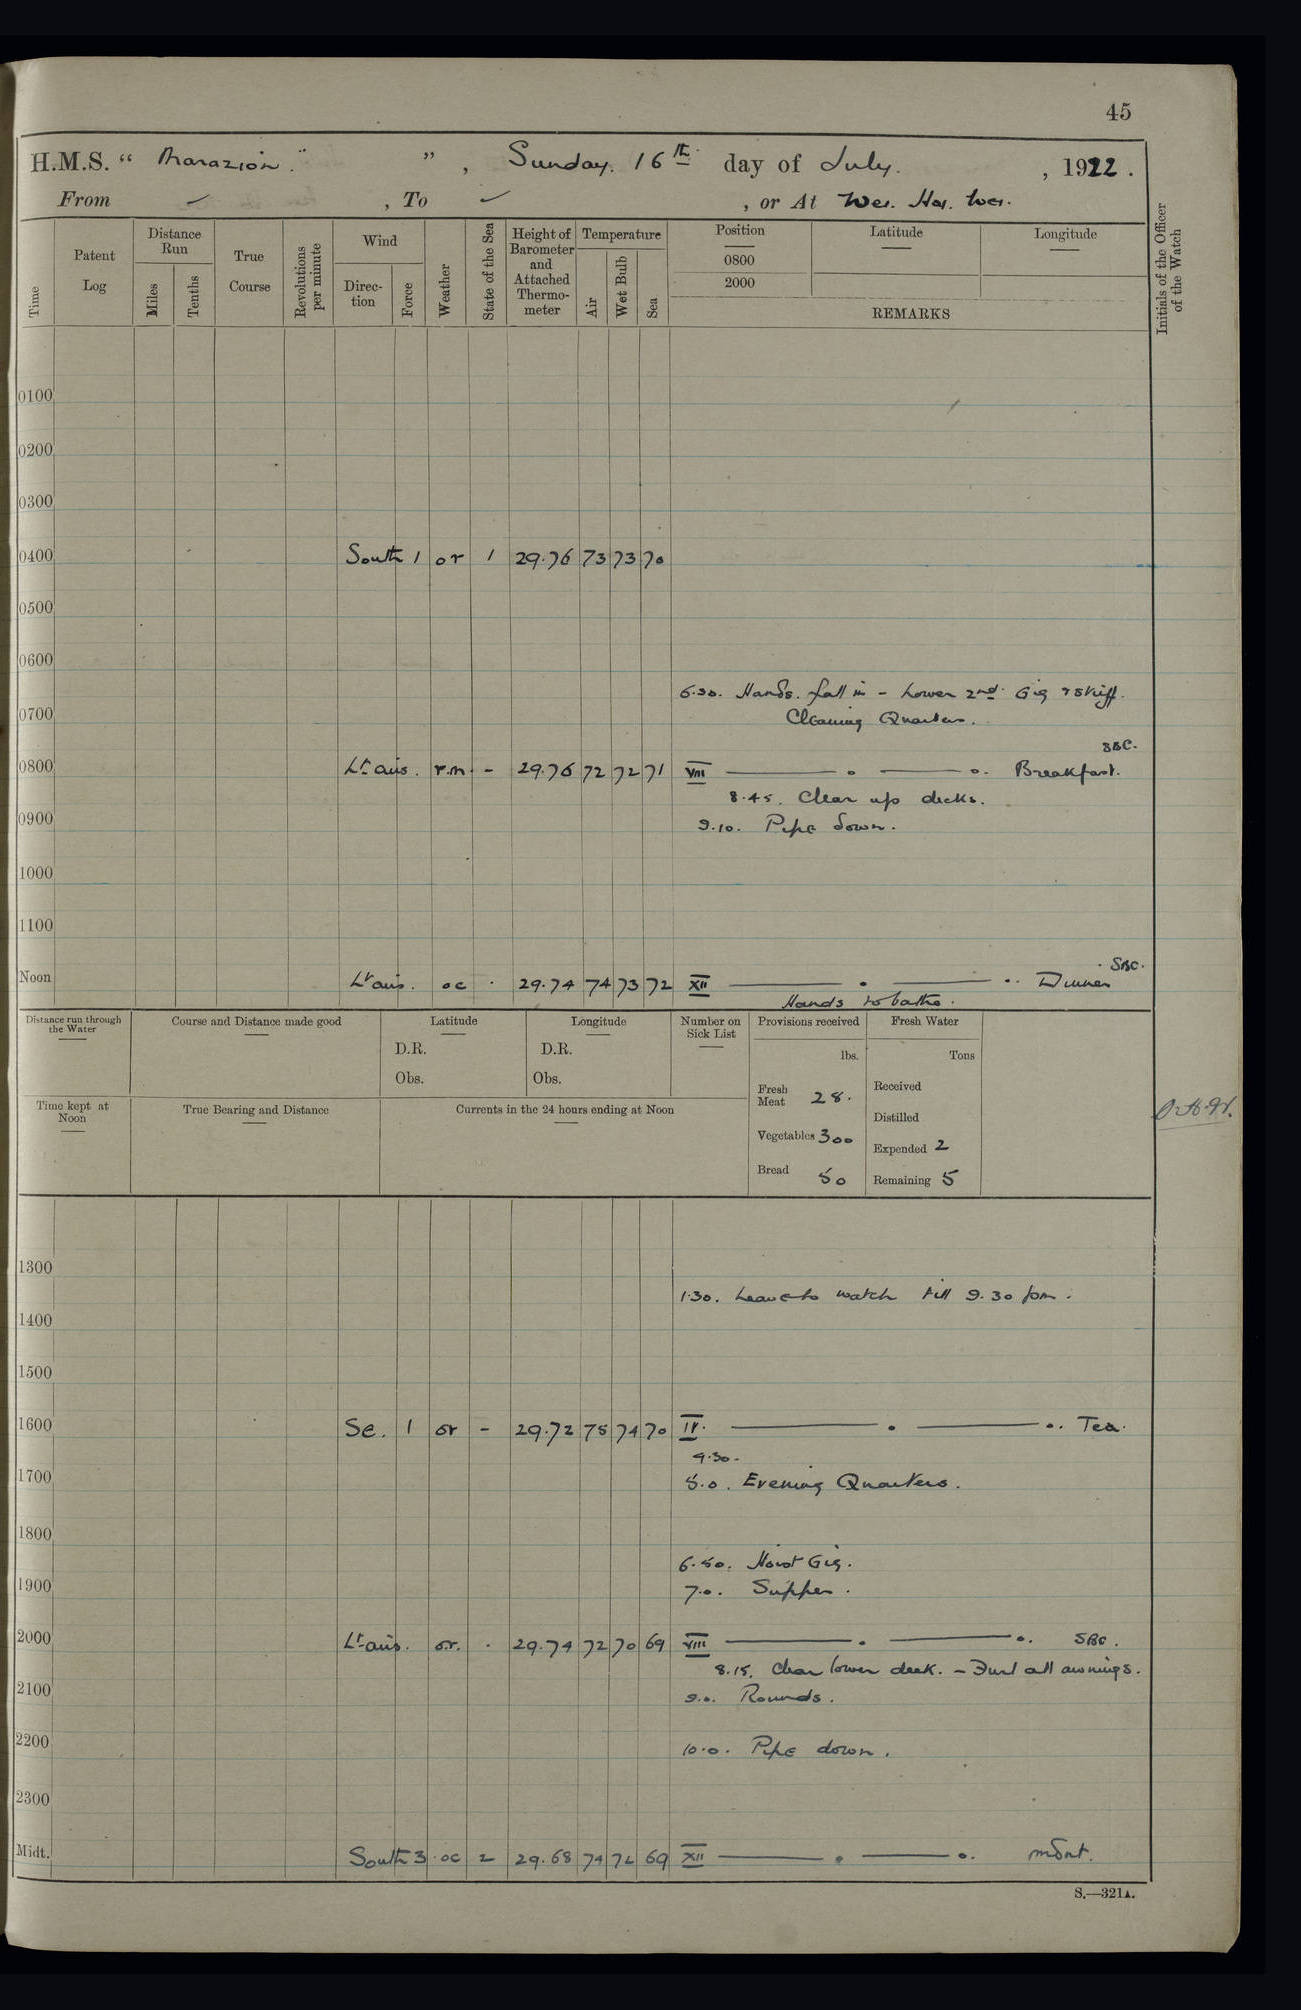 45
H.M.S. " Marazion " , Sunday. 16th day of July. , 1922 .
From ✓ , To ✓ , or At Wei. Hai. Wei.
Time Patent Log Distance Run Miles Tenths True Course Revolutions per minute Wind Direction Force Weather State of the Sea Height of Barometer and Attached Thermometer Temperature Air Wet Bulb Sea Position 0800 2000 Latitude Longitude REMARKS Initials of the Officer of the Watch
0100
0200
0300
0400 South 1 or 1 29.76 73 73 70
0500
0600
6.30. Hands. fall in - Lower 2nd Gig & Skiff.
0700 Cleaning Quarters.
SBC.
0800 Lt airs. r.m. - 29.76 72 72 71 VIII Breakfast.
8.45. Clear up decks.
0900 9.10. Pipe down.
1000
1100
SBC.
Noon Lt airs. oc . 29.74 74 73 72 XII Dinner
Hands to bathe.
Distance run through the Water Course and Distance made good Latitude Longitude Number on Sick List Provisions received Fresh Water
D.R. D.R. lbs. Tons
Obs. Obs. Fresh Meat 28. Received
Time kept at Noon True Bearing and Distance Currents in the 24 hours ending at Noon Distilled
Vegetables 300 Expended 2
Bread 50 Remaining 5
1300
1.30. Leave to watch till 9.30 pm.
1400
1500
1600 SE. 1 or - 29.72 75 74 70 IV. Tea.
4.30.
1700 5.0. Evening Quarters.
1800
6.50. Hoist Gig.
1900 7.0. Supper.
2000 Lt airs. or. . 29.74 72 70 69 VIII SBC.
8.15. Clear lower deck. - Furl all awnings.
2100 9.0. Rounds.
2200 10.0. Pipe down.
2300
Midt. South 3 oc 2 29.68 74 72 69 XII mdnt.
S.—321A.